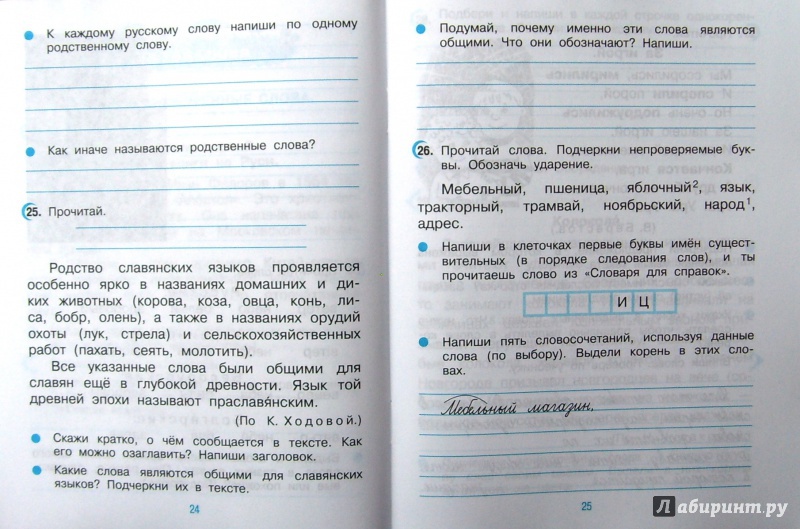 К каждому русскому слову напиши по одному
родственному слову.
Как иначе называются родственные слова?
25. Прочитай.
Родство славянских языков проявляется
особенно ярко в названиях домашних и ди-
ких животных (корова, коза, овца, конь, ли-
са, бобр, олень), а также в названиях орудий
охоты (лук, стрела) и сельскохозяйственных
работ (пахать, сеять, молотить).
Все указанные слова были общими для
славян ещё в глубокой древности. Язык той
древней эпохи называют праславянским.
(По К. Ходовой.)
Скажи кратко, о чём сообщается в тексте. Как
его можно озаглавить? Напиши заголовок.
Какие слова являются общими для славянских
языков? Подчеркни их в тексте.
24
Подумай, почему именно эти слова являются
общими. Что они обозначают? Напиши.
26. Прочитай слова. Подчеркни непроверяемые бук-
вы. Обозначь ударение.
Мебельный, пшеница, яблочный², язык,
тракторный, трамвай, ноябрьский, народ¹,
адрес.
Напиши в клеточках первые буквы имён сущест-
вительных (в порядке следования слов), и ты
прочитаешь слово из «Словаря для справок».
И Ц
Напиши пять словосочетаний, используя данные
слова (по выбору). Выдели корень в этих сло-
вах.
Мебельный магазин,
25
Лабиринт.ру